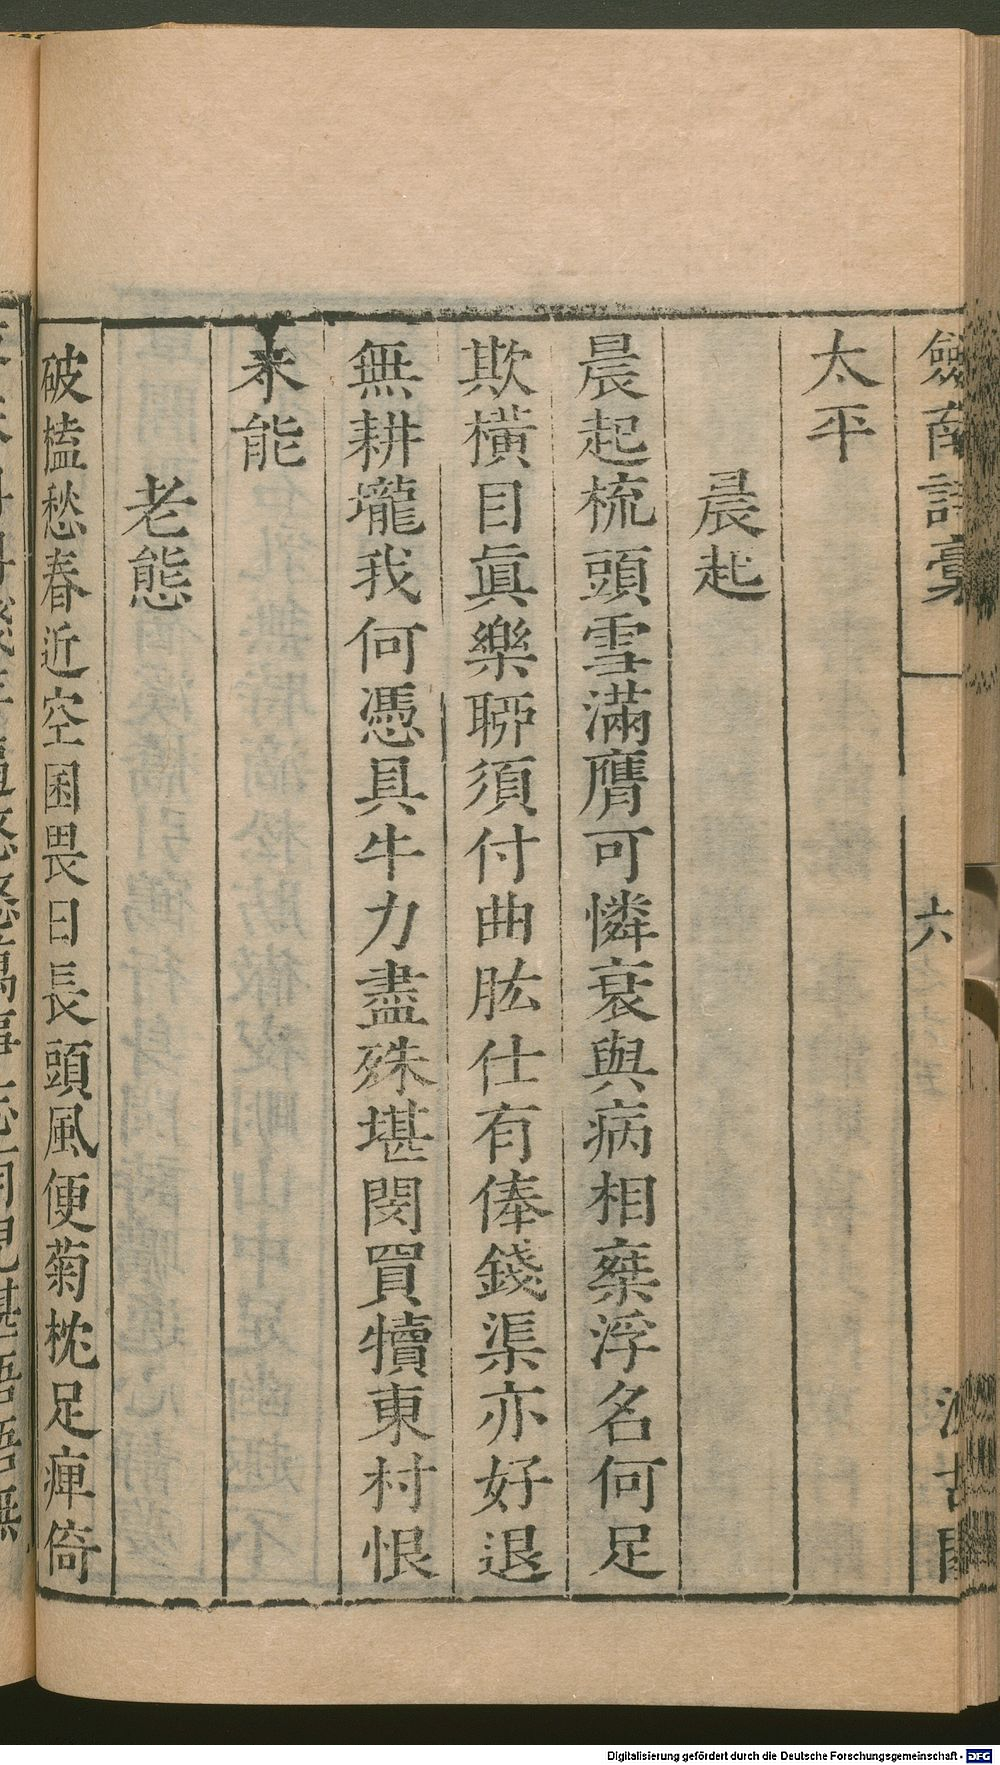 劍南詩稾
六
汲古閣
太平
晨起
晨起梳頭雪滿膺可憐衰與病相棄浮名何足
欺橫目眞樂聊須付曲肱仕有俸錢渠亦好退
無耕壠我何憑具牛力盡殊堪閔買犢東村恨
未能
老態
破榼愁春近空囷畏日長頭風便菊枕足痺倚
Digitalisierung gefördert durch die Deutsche Forschungsgemeinschaft - DFG